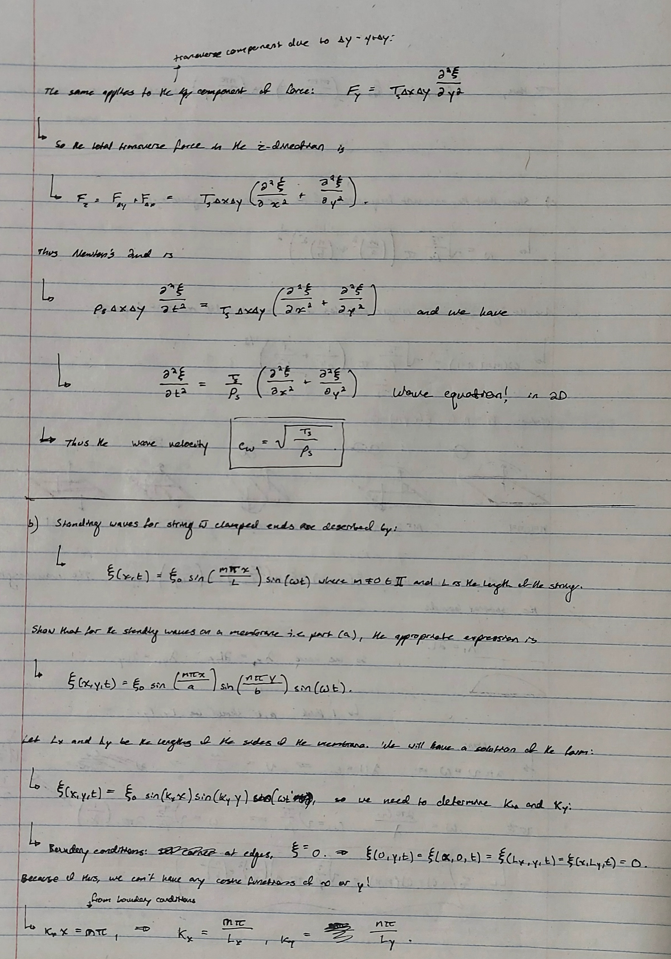 transverse component due to Δy - y+Δy:
The same applies to the y component of force: F_y = T_s Δx Δy ∂²ξ/∂y²
↳ So the total transverse force in the z-direction is
↳ F_z = F_Δy + F_Δx = T_s Δx Δy (∂²ξ/∂x² + ∂²ξ/∂y²).
Thus Newton's 2nd is
↳ ρ_s Δx Δy ∂²ξ/∂t² = T_s Δx Δy (∂²ξ/∂x² + ∂²ξ/∂y²) and we have
↳ ∂²ξ/∂t² = T_s/ρ_s (∂²ξ/∂x² + ∂²ξ/∂y²) Wave equation! in 2D
↳ Thus the wave velocity c_w = √(T_s/ρ_s)
b) Standing waves for string w̄ clamped ends are described by:
↳ ξ(x,t) = ξ₀ sin(mπx/L) sin(ωt) where m ≠ 0 ∈ ℤ and L is the length of the string.
Show that for the standing waves on a membrane i.e part (a), the appropriate expression is
↳ ξ(x,y,t) = ξ₀ sin(mπx/a) sin(nπy/b) sin(ωt).
Let Lx and Ly be the lengths of the sides of the membrane. We will have a solution of the form:
↳ ξ(x,y,t) = ξ₀ sin(k_x x) sin(k_y y) sin(ωt), so we need to determine k_x and k_y:
↳ Boundary conditions: at edges, ξ = 0. ⇒ ξ(0,y,t) = ξ(x,0,t) = ξ(Lx,y,t) = ξ(x,Ly,t) = 0.
Because of this, we can't have any cosine functions of x or y!
from boundary conditions
↳ k_x x = mπ, ⇒ k_x = mπ/L_x, k_y = nπ/L_y.